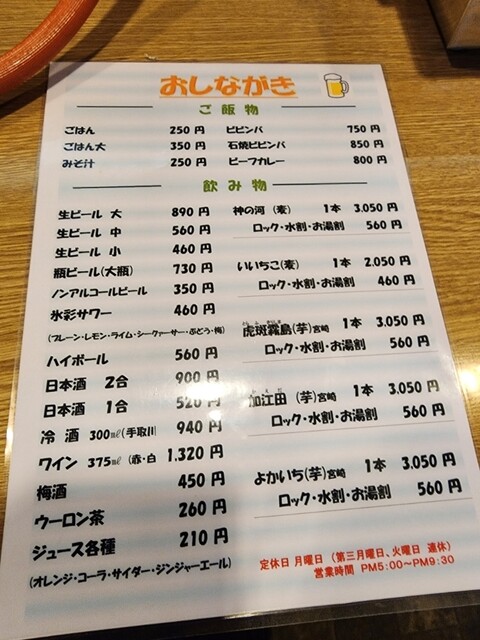 おしながき
ご飯物
ごはん 250円
ごはん大 350円
みそ汁 250円
ビビンバ 750円
石焼ビビンバ 850円
ビーフカレー 800円
飲み物
生ビール 大 890円
生ビール 中 560円
生ビール 小 460円
瓶ビール(大瓶) 730円
ノンアルコールビール 350円
氷彩サワー 460円
(プレーン・レモン・ライム・シークァーサー・ぶどう・梅)
ハイボール 560円
日本酒 2合 900円
日本酒 1合 520円
冷酒 300㎖(手取川 940円
ワイン 375㎖ (赤・白 1.320円
梅酒 450円
ウーロン茶 260円
ジュース各種 210円
(オレンジ・コーラ・サイダー・ジンジャーエール)
神の河(麦) 1本 3.050円
ロック・水割・お湯割 560円
いいちこ(麦) 1本 2.050円
ロック・水割・お湯割 460円
虎斑霧島(芋)宮崎 1本 3.050円
ロック・水割・お湯割 560円
加江田 (芋)宮崎 1本 3.050円
ロック・水割・お湯割 560円
よかいち(芋)宮崎 1本 3.050円
ロック・水割・お湯割 560円
定休日 月曜日 (第三月曜日、火曜日 連休)
営業時間 PM5:00〜PM9:30